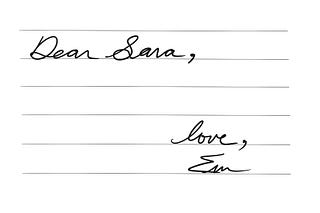 Dear Sara,
love,
Em